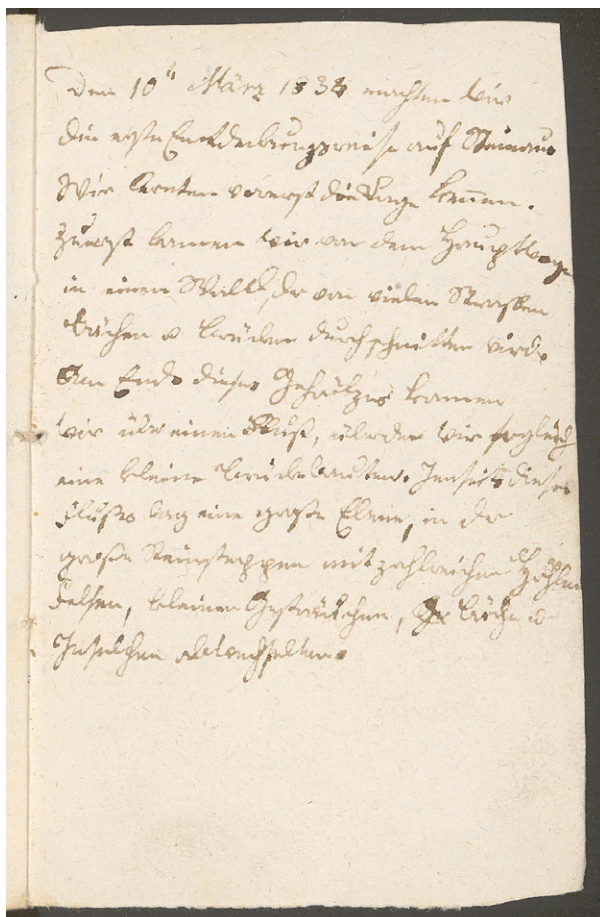 Den 10ᵗ März 1838 machten wir
die erste Entdeckungsreise auf Steinau.
Wir lernten vorerst die Lage kennen.
Zuerst kamen wir von dem Hauptwege
in einen Wald, der von vielen Strassen
Bächen u Brücken durchschnitten wird.
Am Ende dieses Gehölzes kamen
wir über einen Fluß, über den wir sogleich
eine kleine Brücke bauten. Jenseits dieses
Flußes lag eine große Ebene, in der
große Steingruppen mit zahlreichen Höhlen
Felsen, kleinen Gesträuchen, Bäche u
Inselchen abwechselten.